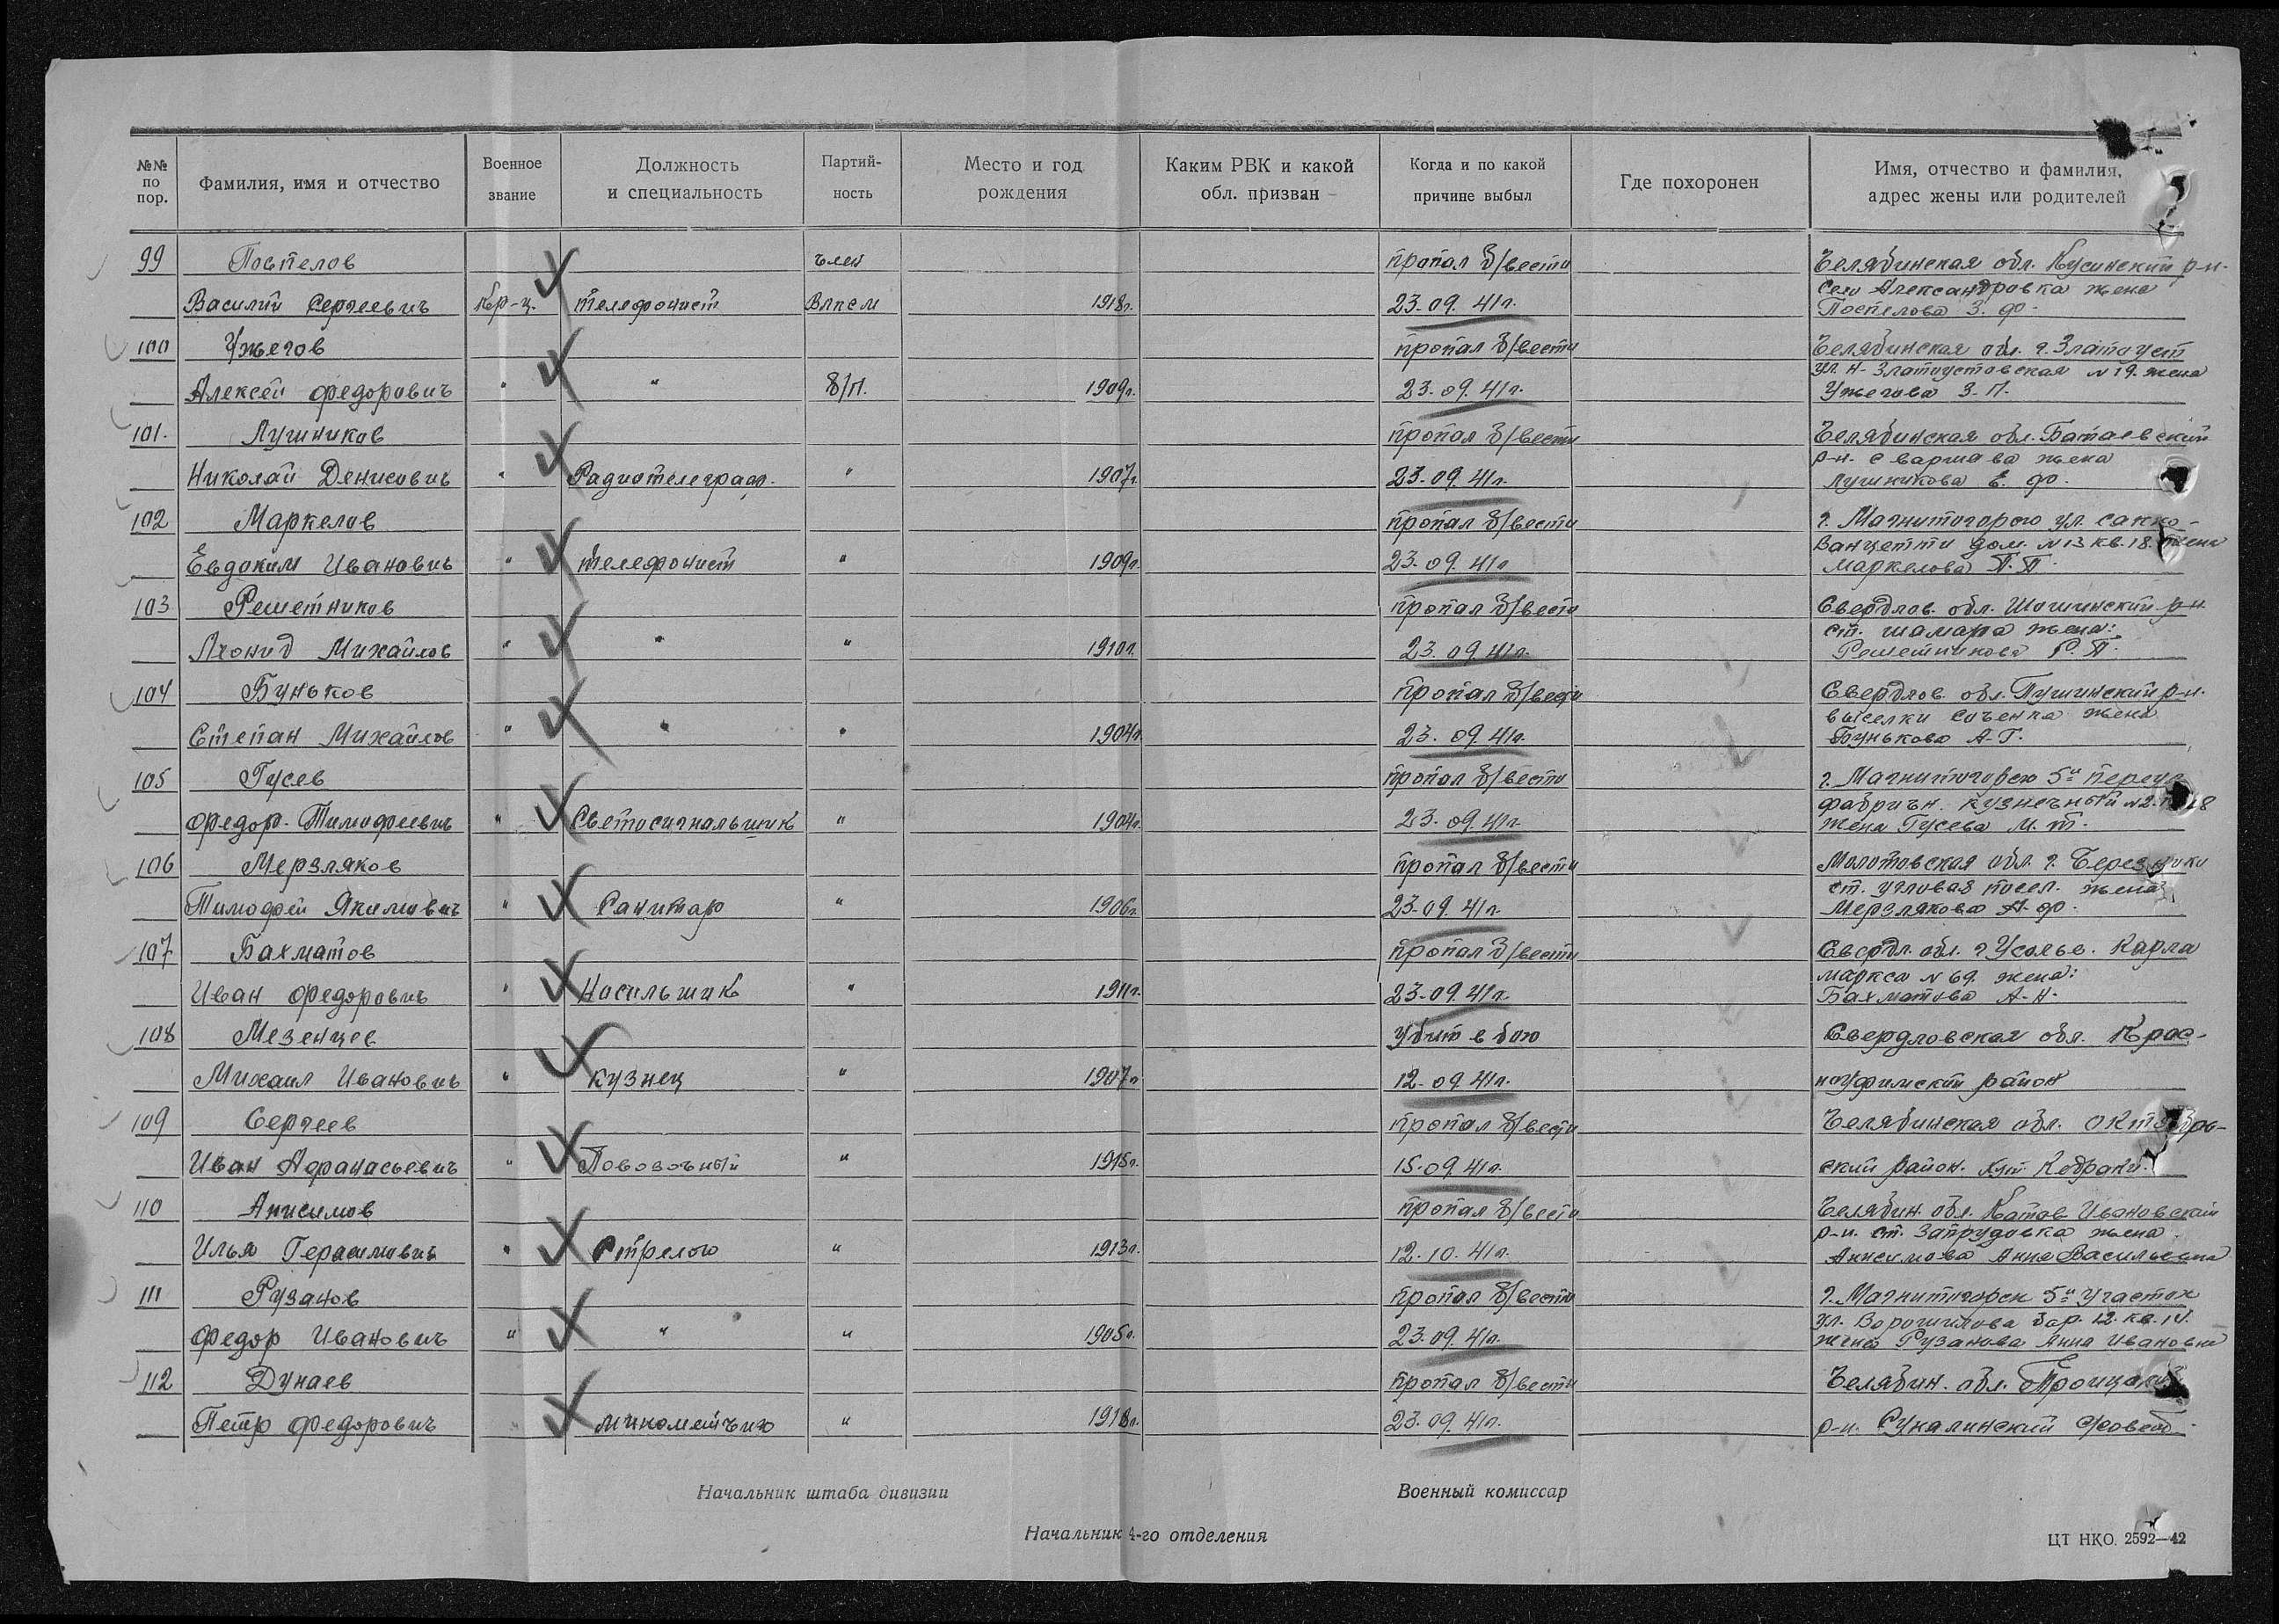 №№ по пор. Фамилия, имя и отчество Военное звание Должность и специальность Партий- ность Место и год рождения Каким РВК и какой обл. призван Когда и по какой причине выбыл Где похоронен Имя, отчество и фамилия, адрес жены или родителей
99 Поспелов член пропал б/вести Челябинская обл. Кусинский р-н.
село Александровка жена
Василий Сергеевич кр-ц. телефонист ВЛКСМ 1918г. 23.09.41г. Поспелова З. Ф.
100 Ужегов пропал б/вести Челябинская обл. г. Златоуст
ул. Н-Златоустовская №19. жена
Алексей Федорович " " б/п. 1909г. 23.09.41г. Ужегова З. П.
101. Лушников пропал б/вести Челябинская обл. Батаевский
р-н. с Варшава жена
Николай Денисович " Радиотелеграф. " 1907г. 23.09.41г. Лушникова Е. Ф.
102 Маркелов пропал б/вести г. Магнитогорск ул. Сакко-
Ванцетти дом. №13 кв. 18. жена
Евдоким Иванович " телефонист " 1909г. 23.09.41г Маркелова П. П.
103 Решетников пропал б/вести Свердлов. обл. Шалинский р-н
ст. Шамара жена:
Леонид Михайлов " " " 1910г. 23.09.41г. Решетникова Р. П.
104 Буньков пропал б/вести Свердлов. обл. р-н.
выселки жена
Степан Михайлов " " " 1904г. 23.09.41г. Бунькова А. Г.
105 Гусев пропал б/вести г. Магнитогорск 5й
фабричн. кузнечный №2.
Федор. Тимофеевич " Светосигнальщик " 1904г. 23.09.41г. жена Гусева М. Т.
106 Мерзляков пропал б/вести Молотовская обл. г. Березники
ст. Угловая посел. жена
Тимофей Якимович " Санитар " 1906г. 23.09.41г. Мерзлякова А. Ф.
107 Бахматов пропал б/вести Свердл. обл. г Усолье. Карла
маркса №69. жена:
Иван Федорович " Носильшик " 1911г. 23.09.41г. Бахматова А. Н.
108 Мезенцев Убит в бою Свердловская обл. Крас-
Михаил Иванович " кузнец " 1907г 12.09.41г. ноуфимский район
109 Сергеев пропал б/вести Челябинская обл. Октябрь-
Иван Афанасьевич " Повозочный " 1915г. 15.09.41г. ский район.
110 Анисимов пропал б/вести Челябин. обл. Катав Ивановский
р-н. ст. Запрудовка жена
Илья Герасимович " Стрелок " 1913г. 12.10.41г. Анисимова Анна Васильевна
111 Рузанов пропал б/вести г. Магнитогорск 5й Участок
ул. Ворошилова бар. 12. кв. 14.
Федор Иванович " " " 1905г. 23.09.41г. жена Рузанова Анна Ивановна
112 Дунаев пропал б/вести Челябин. обл. Троицкий
Петр Федорович " минометчик " 1918г. 23.09.41г. р-н. Совет
Начальник штаба дивизии Военный комиссар
Начальник 4-го отделения
ЦТ НКО. 2592—42